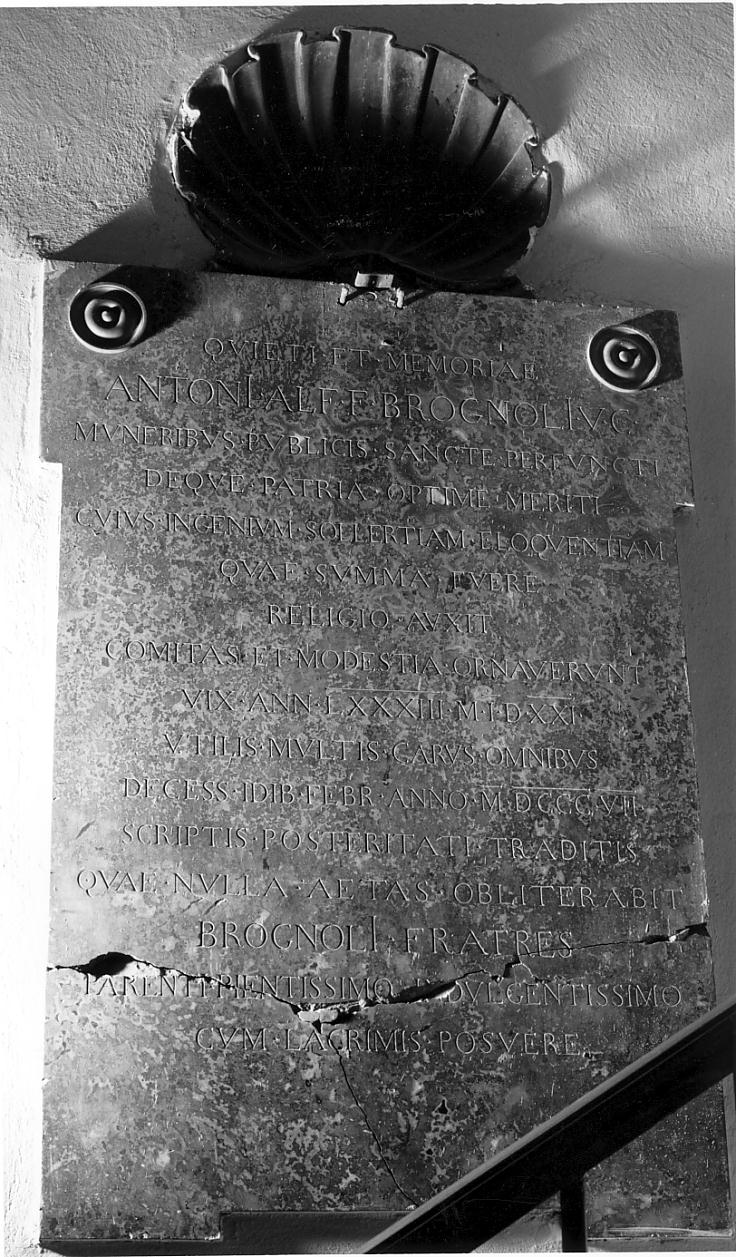 QVIETI · ET · MEMORIAE
ANTONI · ALF · F · BROGNOLI · V · C ·
MVNERIBVS · PVBLICIS · SANCTE · PERFVNCTI
DEQVE · PATRIA · OPTIME · MERITI
CVIVS · INGENIVM · SOLLERTIAM · ELOQVENTIAM
QVAE · SVMMA · FVERE
RELIGIO · AVXIT
COMITAS · ET · MODESTIA · ORNAVERVNT
VIX · ANN · LXXXIII · M · I · D · XXI ·
VTILIS · MVLTIS · CARVS · OMNIBVS
DECESS · IDIB · FEBR · ANNO · M · DCCCVII ·
SCRIPTIS · POSTERITATI · TRADITIS
QVAE · NVLLA · AETAS · OBLITERABIT
BROGNOLI · FRATRES
PARENTI · PIENTISSIMO · INDVLGENTISSIMO
CVM · LACRIMIS · POSVERE